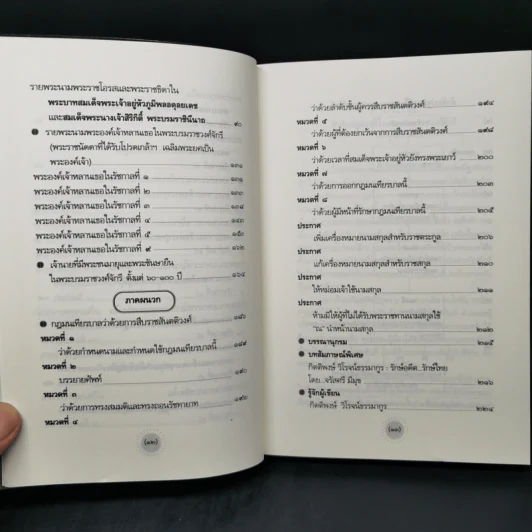 รายพระนามพระราชโอรสและพระราชธิดาใน
พระบาทสมเด็จพระเจ้าอยู่หัวภูมิพลอดุลยเดช
และสมเด็จพระนางเจ้าสิริกิติ์ พระบรมราชินีนาถ ๙๐
รายพระนามพระองค์เจ้าหลานเธอในพระบรมราชวงศ์จักรี
(พระราชนัดดาที่ได้รับโปรดเกล้าฯ เฉลิมพระยศเป็น
พระองค์เจ้า) ๑๓๑
พระองค์เจ้าหลานเธอในรัชกาลที่ ๑ ๑๓๑
พระองค์เจ้าหลานเธอในรัชกาลที่ ๒ ๑๓๓
พระองค์เจ้าหลานเธอในรัชกาลที่ ๓ ๑๓๘
พระองค์เจ้าหลานเธอในรัชกาลที่ ๔
พระองค์เจ้าหลานเธอในรัชกาลที่ ๕
พระองค์เจ้าหลานเธอในรัชกาลที่ ๙ ๑๖๒
เจ้านายที่มีพระชนมายุและพระชันษายืน
ในพระบรมราชวงศ์จักรี ตั้งแต่ ๖๐-๑๐๐ ปี ๑๖๔
ภาคผนวก
กฎมณเฑียรบาลว่าด้วยการสืบราชสันตติวงศ์
หมวดที่ ๑
ว่าด้วยกำหนดนามและกำหนดใช้กฎมณเฑียรบาลนี้ ๑๘๙
หมวดที่ ๒
บรรยายศัพท์ ๑๙๐
หมวดที่ ๓
ว่าด้วยการทรงสมมติและทรงถอนรัชทายาท ๑๙๒
หมวดที่ ๔
(๑๒)
ว่าด้วยลำดับชั้นผู้ควรสืบราชสันตติวงศ์ ๑๙๔
หมวดที่ ๕
ว่าด้วยผู้ที่ต้องยกเว้นจากการสืบราชสันตติวงศ์ ๑๙๘
หมวดที่ ๖
ว่าด้วยเวลาที่สมเด็จพระเจ้าอยู่หัวยังทรงพระเยาว์ ๒๐๐
หมวดที่ ๗
ว่าด้วยการออกกฎมณเฑียรบาลนี้ ๒๐๓
หมวดที่ ๘
ว่าด้วยผู้มีหน้าที่รักษากฎมณเฑียรบาลนี้ ๒๐๕
ประกาศ
เพิ่มเครื่องหมายนามสกุลสำหรับราชตระกูล ๒๐๖
ประกาศ
แก้เครื่องหมายนามสกุลสำหรับราชสกุล ๒๑๐
ประกาศ
ให้หม่อมเจ้าใช้นามสกุล ๒๑๑
ประกาศ
ห้ามมิให้ผู้ที่ไม่ได้รับพระราชทานนามสกุลใช้
"ณ" นำหน้านามสกุล ๒๑๒
บรรณานุกรม ๒๑๕
บทสัมภาษณ์พิเศษ
กิตติพงษ์ วิโรจน์ธรรมากูร : รักษ์อดีต..รักษ์ไทย
โดย..จรัสศรี มีมุข ๒๑๖
รู้จักผู้เขียน
กิตติพงษ์ วิโรจน์ธรรมากูร ๒๒๔